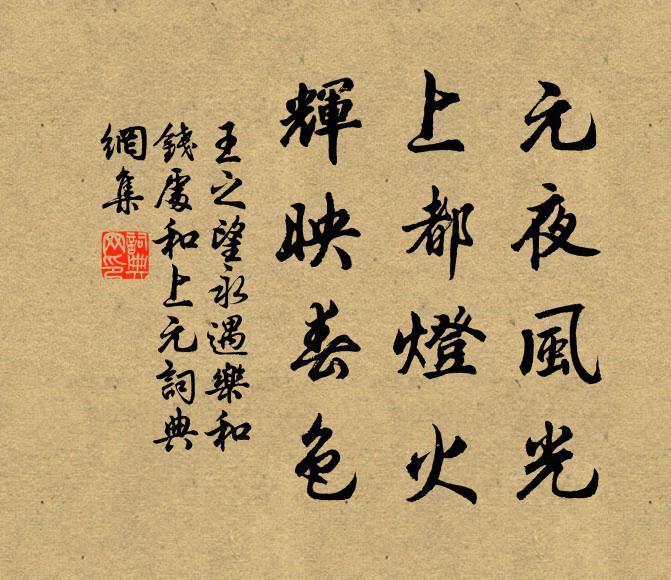 元夜風光
上都燈火
輝映春色
王之望永遇樂和
錢處和上元詞典
網集
詞典
网印